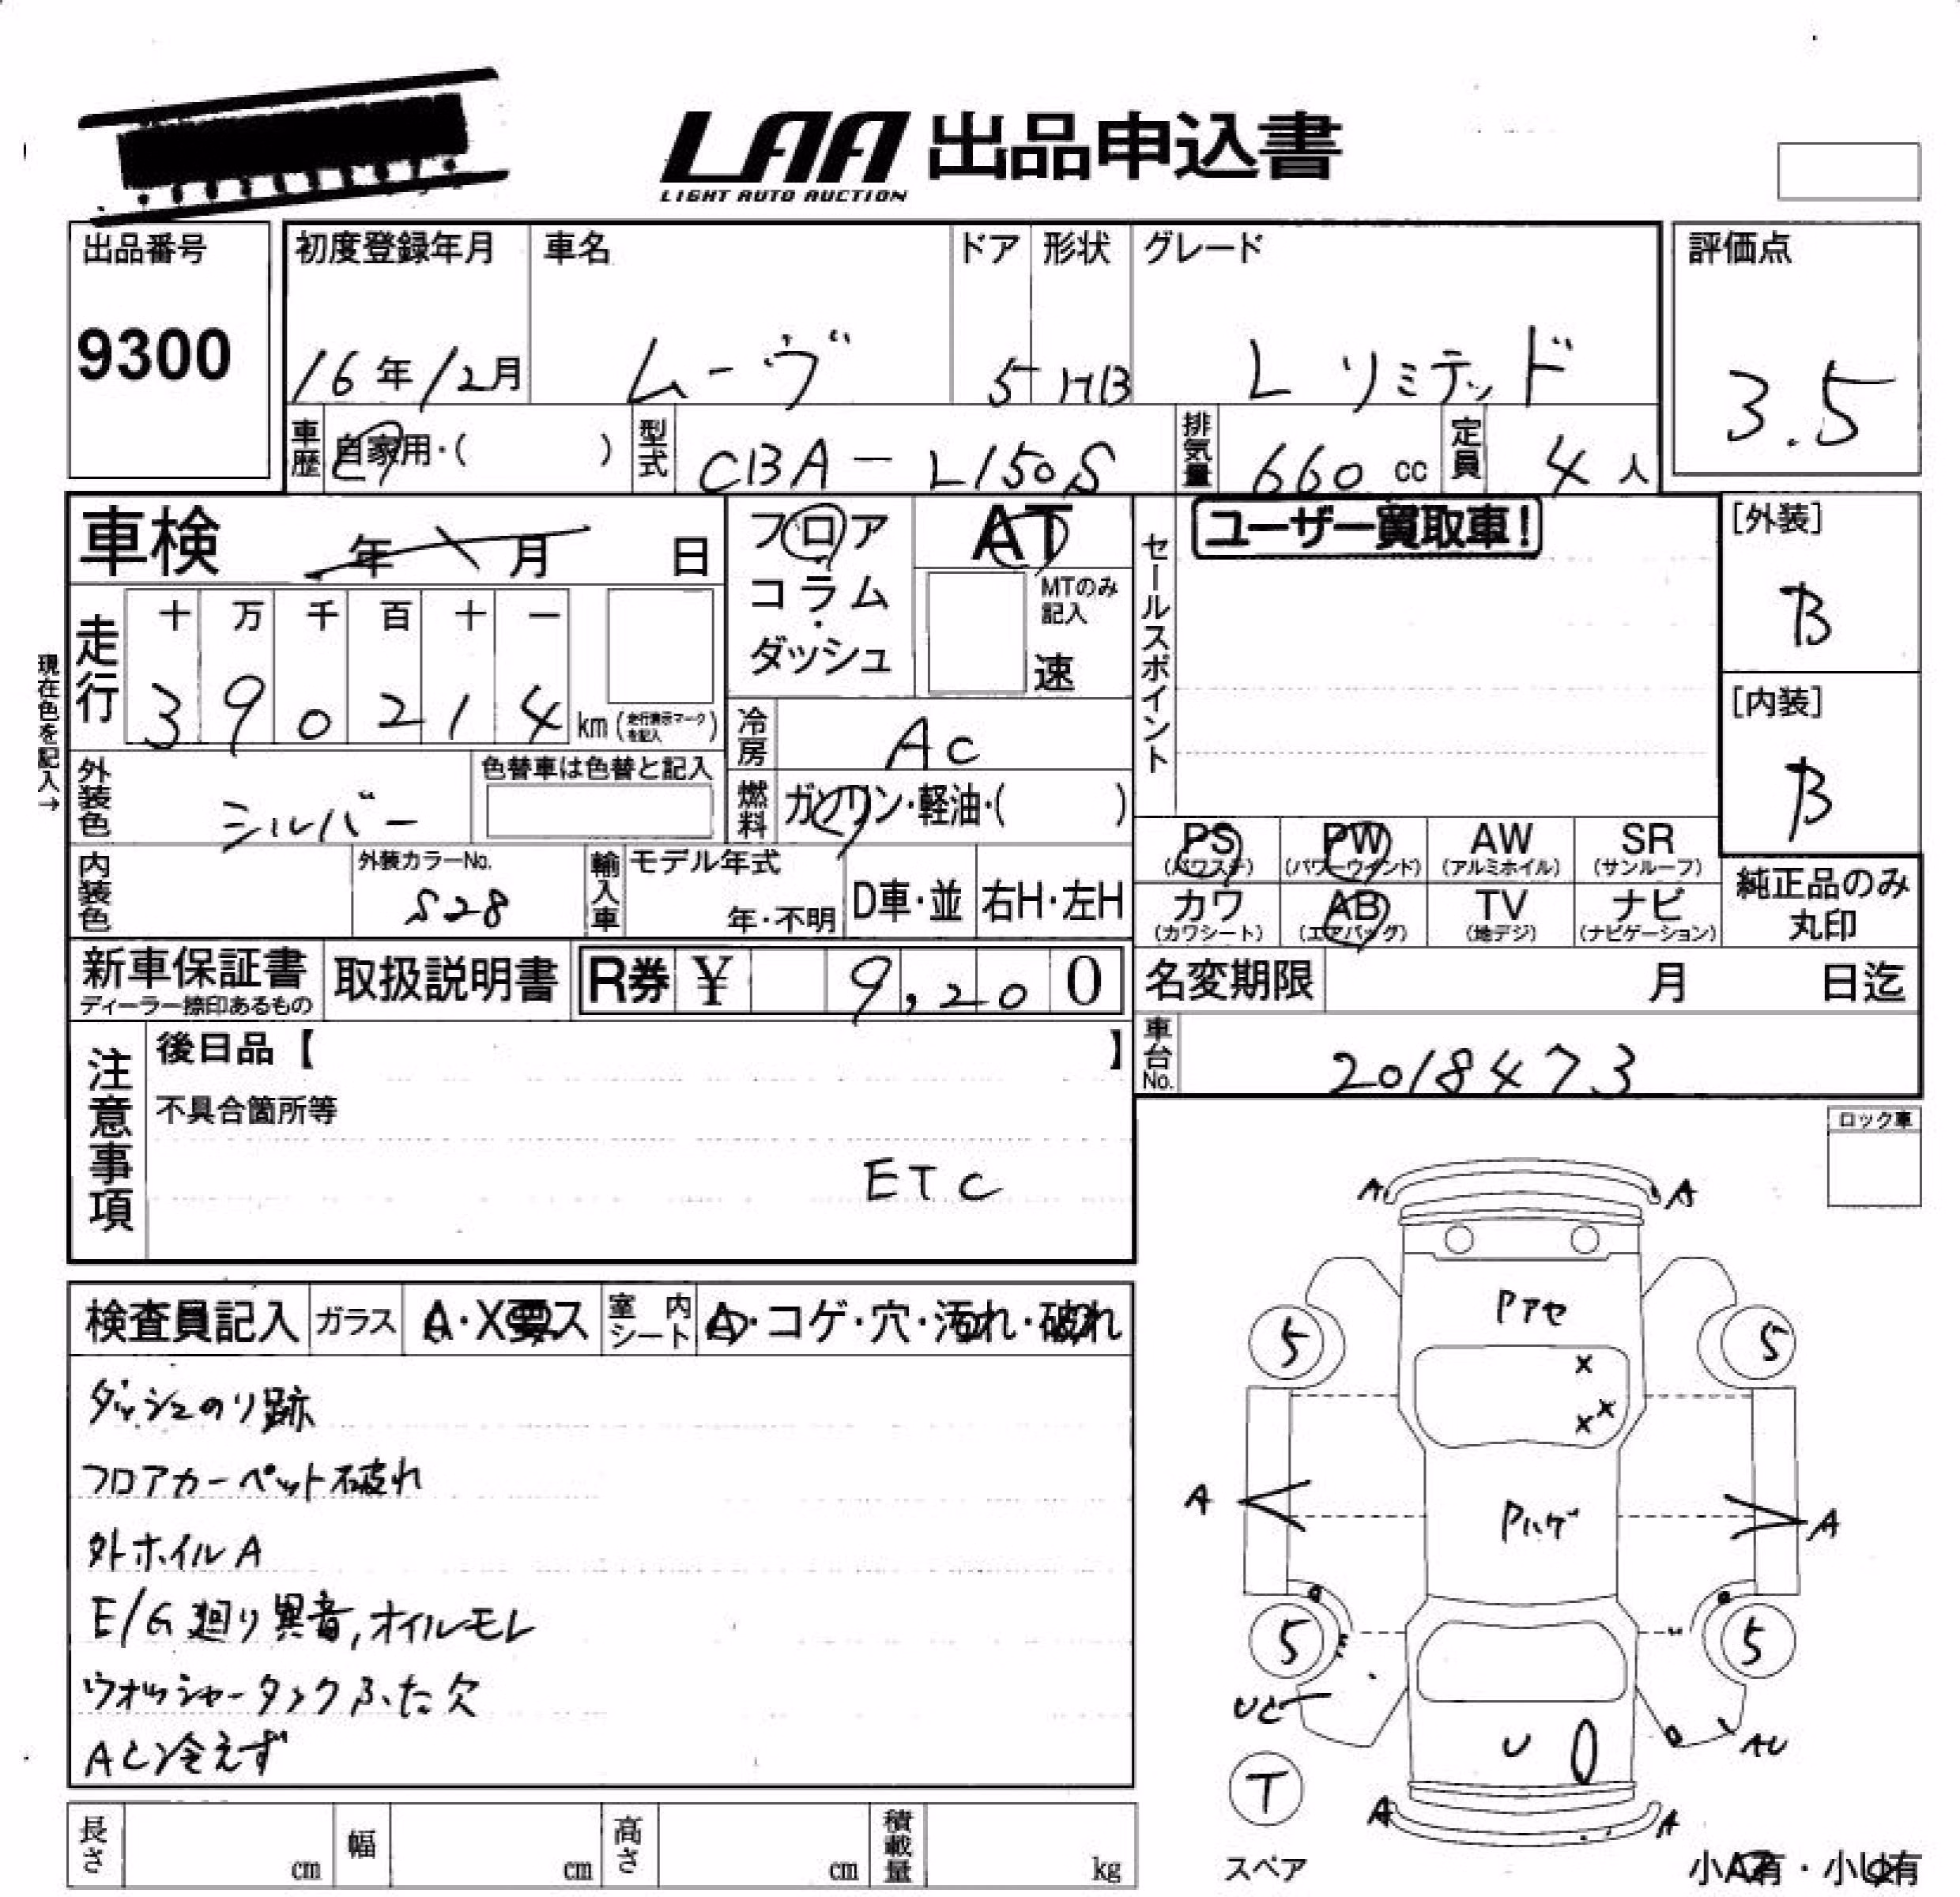 LAA 出品申込書
LIGHT AUTO AUCTION
出品番号 9300
初度登録年月 16年12月
車名 ムーヴ
ドア 5
形状 HB
グレード L リミテッド
評価点 3.5
車歴 自家用・( )
型式 CBA-L150S
排気量 660 cc
定員 4人
車検 年 月 日
フロア・コラム・ダッシュ
AT
MTのみ記入 速
セールスポイント
ユーザー買取車!
[外装] B
[内装] B
現在色を記入→
走行 十 万 千 百 十 一
390214 km (走行表示マークを記入)
冷房 AC
燃料 ガソリン・軽油・( )
外装色 シルバー
色替車は色替と記入
内装色
外装カラーNo. S28
輸入車 モデル年式 年・不明
D車・並 右H・左H
PS (パワステ) PW (パワーウインド) AW (アルミホイル) SR (サンルーフ)
カワ (カワシート) AB (エアバッグ) TV (地デジ) ナビ (ナビゲーション)
純正品のみ丸印
新車保証書 ディーラー捺印あるもの
取扱説明書
R券 ¥ 9,200
名変期限 月 日迄
車台No. 2018473
注意事項
後日品【 】
不具合箇所等
ETC
ロック車
検査員記入 ガラス A・X要ス 室内シート A・コゲ・穴・汚れ・破れ
ダッシュのり跡
フロアカーペット破れ
外ホイルA
E/G廻り異音,オイルモレ
ウオッシャータンクふた欠
AC冷えず
A A
Pアセ
5 5
X
X X
A Pハゲ A
5 5
U
AU
T
A A
スペア
小A有・小U有
長さ cm 幅 cm 高さ cm 積載量 kg